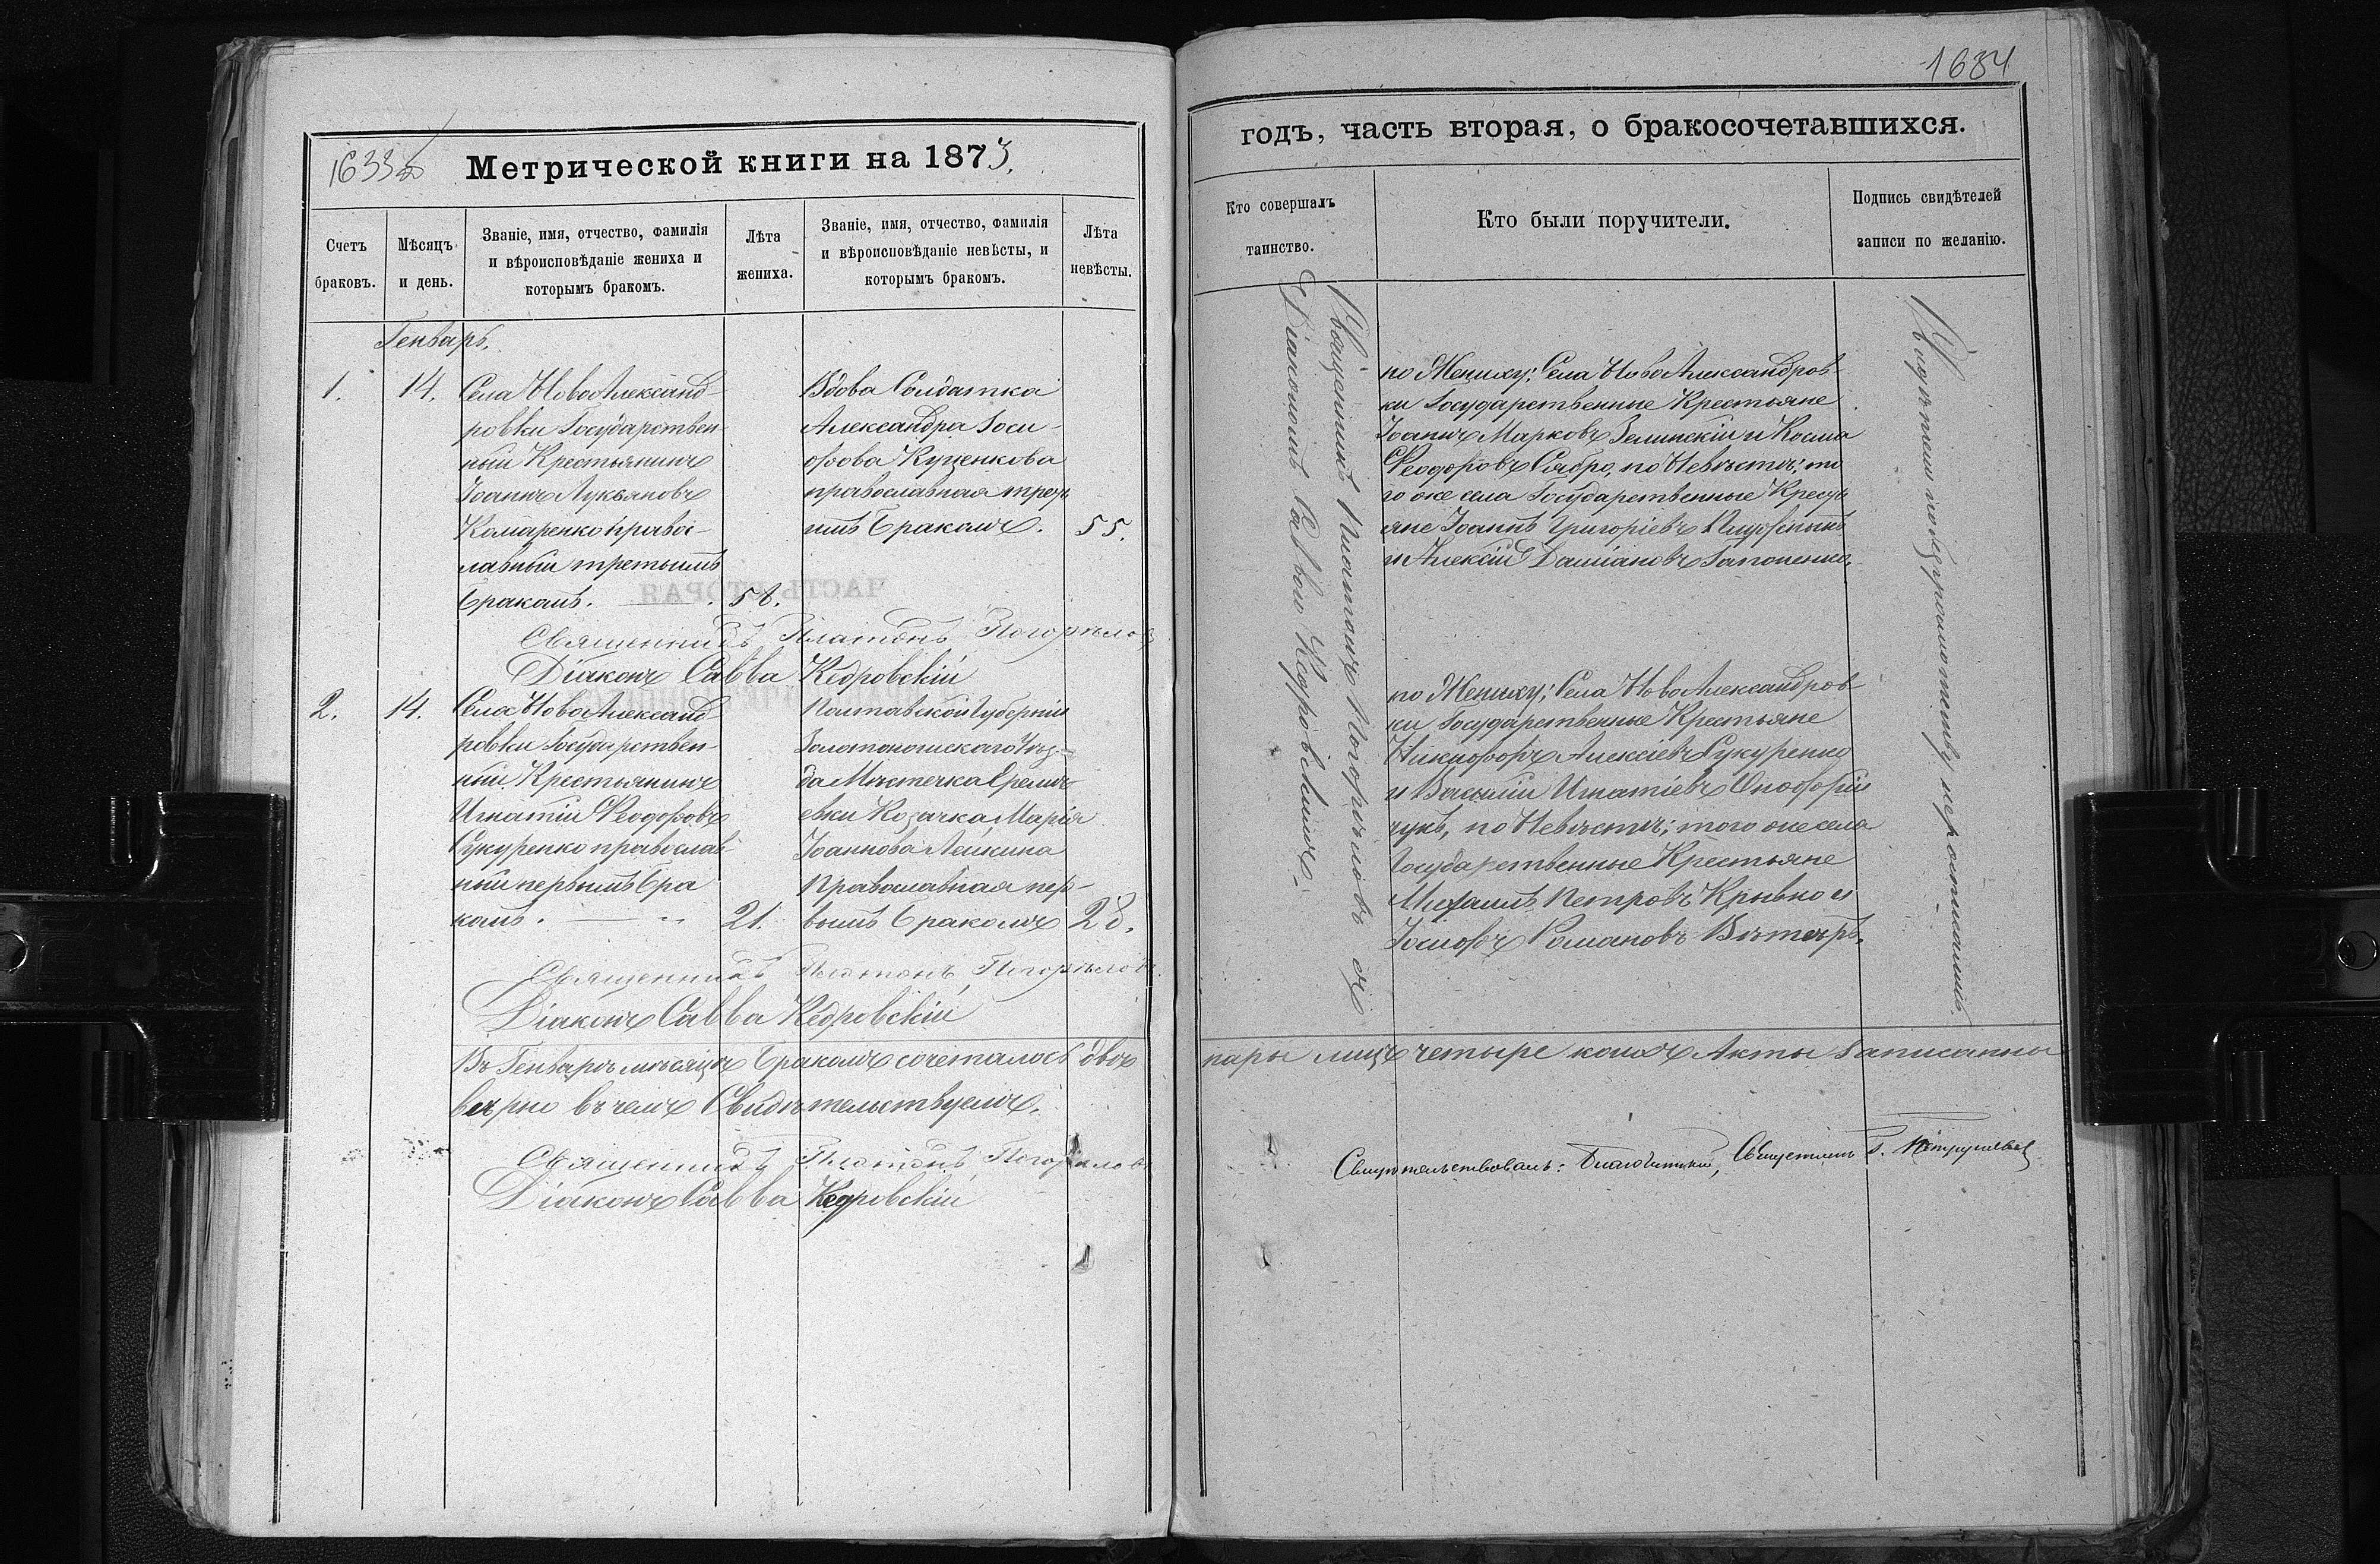 1633об
Метрической книги на 1873.
Счетъ браковъ.
Мѣсяцъ и день.
Званіе, имя, отчество, фамилія
и вѣроисповѣданіе жениха и
которымъ бракомъ.
Лѣта жениха.
Званіе, имя, отчество, фамилія
и вѣроисповѣданіе невѣсты, и
которымъ бракомъ.
Лѣта невѣсты.
Генварь.
1.
14.
Села НовоАлександ-
ровки Государствен-
ный Крестьянинъ
Іоаннъ Лукьяновъ
Комаренко право-
лавный третьимъ
бракомъ.
58.
Вдова Солдатка
Александра Іоси-
фова Куценкова
православная треть
имъ бракомъ.
55.
Священникъ Платонъ Погорѣловъ
Діаконъ Савва Кедровскій
2.
14.
Села НовоАлександ-
ровки Государствен-
ный Крестьянинъ
Игнатій Феодоровъ
Сукуренко православ-
ный первымъ бра
комъ.
21.
Полтавской Губерніи
Золотоношскаго Уѣз-
да Мѣстечка Еремѣ-
евки Козачка Марія
Іоаннова Лейкина
Православная пер-
вымъ бракомъ
28.
Священникъ Платонъ Погорѣловъ
Діаконъ Савва Кедровскій
Въ Генварѣ мѣсяцѣ бракомъ сочеталось двѣ
вѣрно въ чемъ Свидѣтельствуемъ.
Священникъ Платонъ Погорѣловъ
Діаконъ Савва Кедровскій
1634
годъ, часть вторая, о бракосочетавшихся.
Кто совершалъ
таинство.
Кто были поручители.
Подпись свидѣтелей
записи по желанію.
Священникъ Платонъ Погорѣловъ съ
Діакономъ Саввою Кедровскимъ.
по Жениху: Села НовоАлександров-
ки Государственные Крестьяне
Іоаннъ Марковъ Зелинскій и Косма
Феодоровъ Сябро, по Невѣстѣ: то
го же села Государственные Кресть
яне Іоаннъ Григоріевъ
и Алексій Даміановъ Гапоненко.
по Жениху: Села НовоАлександров-
ки Государственные Крестьяне
Никифоръ Алексіевъ Сукуренко
и Василій Игнатіевъ Оноофрій
чукъ, по Невѣстѣ: того же села
Государственные Крестьяне
Михаилъ Петровъ Крывко и
Іосифъ Романовъ Вѣтеръ.
Свидѣтели по безграмотству не росписались.
пары лицъ четыре коихъ Акты записанны
Свидѣтельствовалъ: Благочинный, Священникъ Г.